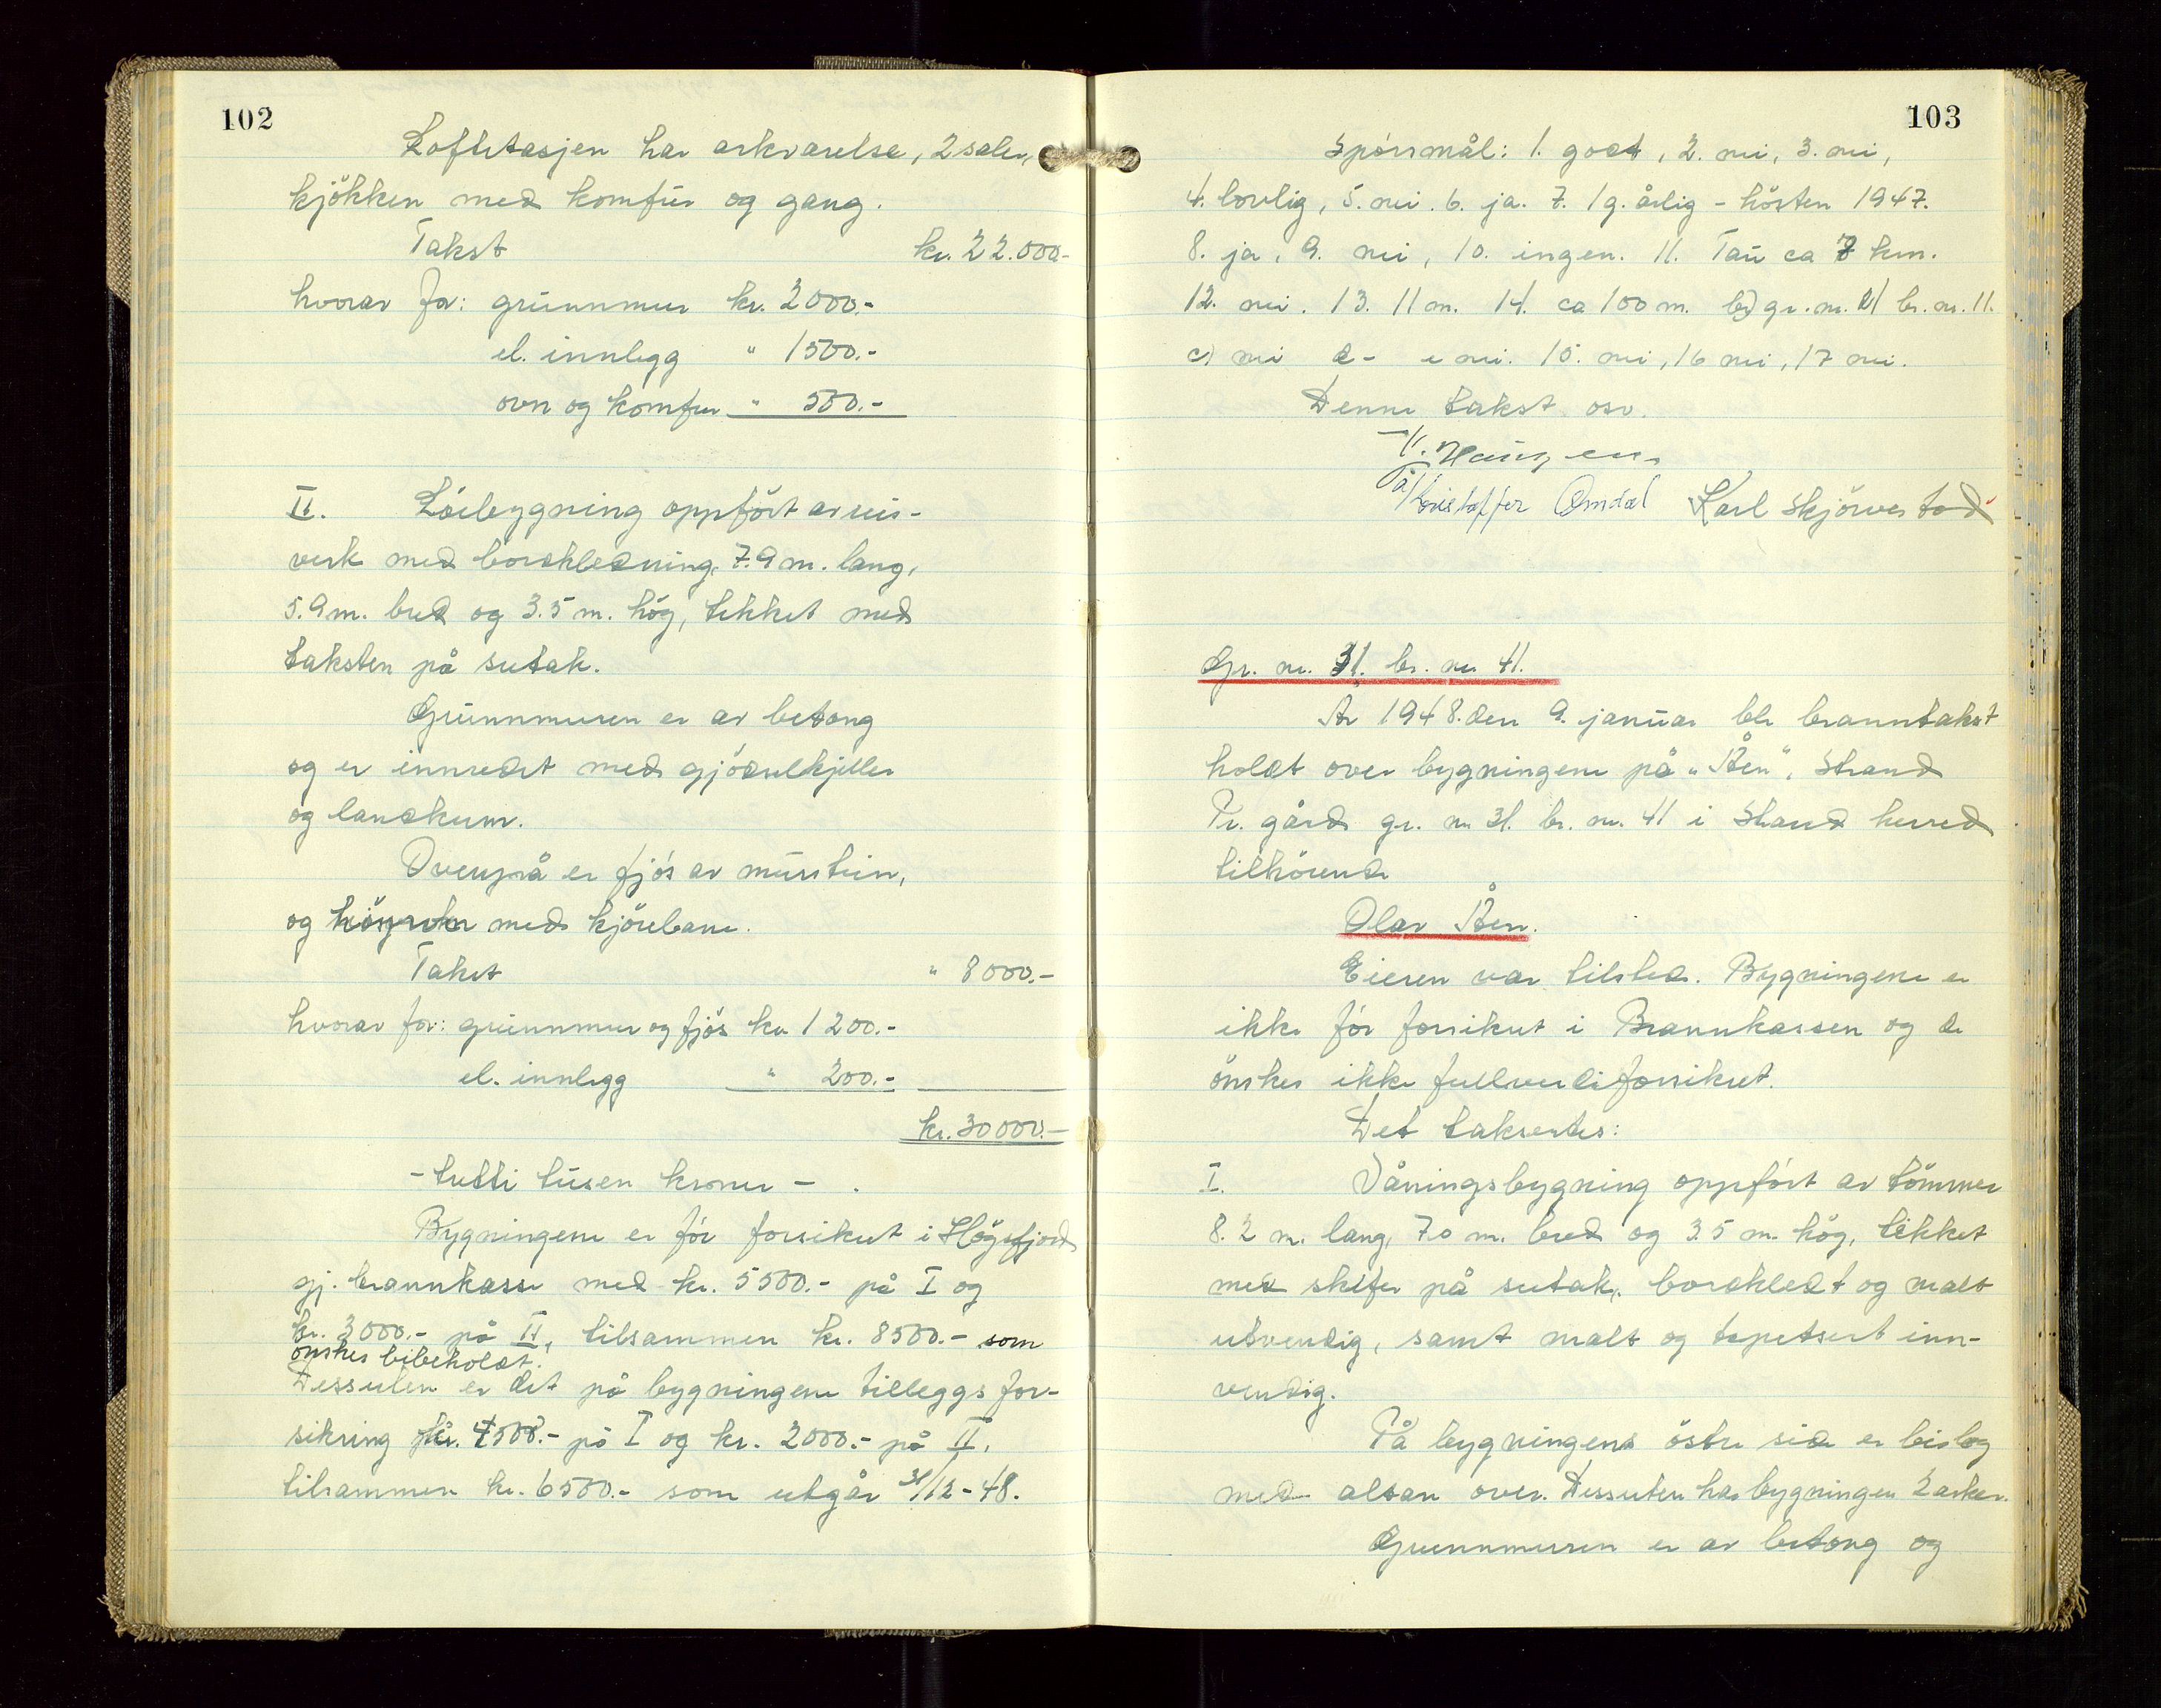 102
Loftetasjen har arkvarelse, 2 saler,
kjökken med komfur og gang.
Takst kr. 22.000.-
hvorav for: grunnmur kr. 2000.-
el. innlegg " 1500.-
ovn og komfur " 500.-
II. Löebygning oppfört av reis-
verk med bordkledning, 7.9 m. lang,
5.9 m. bred og 3.5 m. hög, tekket med
taksten på sutak.
Grunnmuren er av betong
og er innredet med gjödselkjeller
og landkum.
Ovenpå er fjós av murstein,
og med kjörebane.
Takst " 8000.-
hvorav for: grunnmur og fjös kr. 1200.-
el. innlegg " 200.-
kr. 30000.-
- tretti tusen kroner -.
Bygningene er för forsikret i Högsfjord
gj. brannkasse med kr. 5500.- på I og
kr. 3000.- på II, tilsammen kr. 8500.- som
önskes bibeholdt.
Dessuten er det på bygningene tilleggsfor-
sikring kr. 4500.- på I og kr. 2000.- på II,
tilsammen kr. 6500.- som utgår 31/12-48.
103
Spörsmål: 1. godt, 2. nei, 3. nei,
4. lovlig, 5. nei. 6. ja. 7. 1 g. årlig - hösten 1947.
8. ja, 9. nei, 10. ingen. 11. Tau ca 7 km.
12. nei. 13. 11 m. 14. ca 100 m. b) gr. nr. 21 br. nr. 11.
c) nei d - e nei. 15. nei, 16 nei, 17 nei.
Denne takst osv.
T. Haugen
Kristoffer Omdal Karl Skjörvestad
Gr. nr. 31. br. nr. 41.
År 1948. den 9. januar ble branntakst
holdt over bygningene på "Åen", Strand
Pr. gård gr. nr. 31. br. nr. 41 i Strand herred
tilhörende
Olav Åen.
Eieren var tilsted. Bygningene er
ikke för forsikret i Brannkassen og de
önskes ikke fullverdiforsikret.
Det takserdes:
I. Våningsbygning oppfört av tömmer
8.2 m. lang, 7.0 m. bred og 3.5 m. hög, tekket
med skifer på sutak, bordkledt og malt
utvendig, samt malt og tapetsert inn-
vendig.
På bygningens östre side er bislag
med altan over. Dessuten har bygningen 2 arker.
Grunnmuren er av betong og